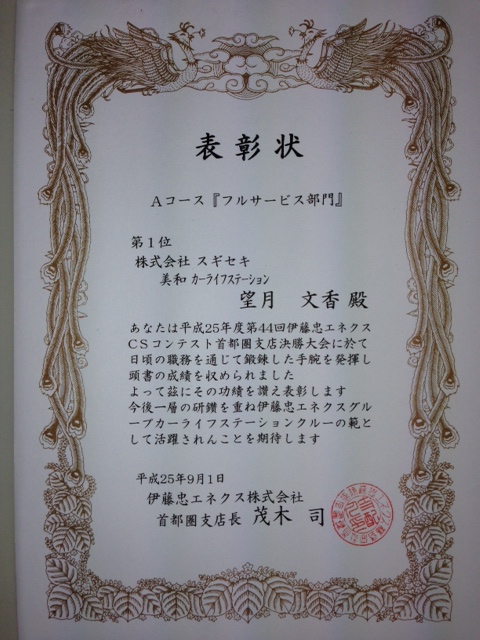 表彰状
Aコース『フルサービス部門』
第1位
株式会社 スギセキ
美和 カーライフステーション
望月 文香 殿
あなたは平成25年度第44回伊藤忠エネクス
CSコンテスト首都圏支店決勝大会に於て
日頃の職務を通じて鍛錬した手腕を発揮し
頭書の成績を収められました
よって茲にその功績を讃え表彰します
今後一層の研鑽を重ね伊藤忠エネクスグル
ープカーライフステーションクルーの範と
して活躍されんことを期待します
平成25年9月1日
伊藤忠エネクス株式会社
首都圏支店長 茂木 司